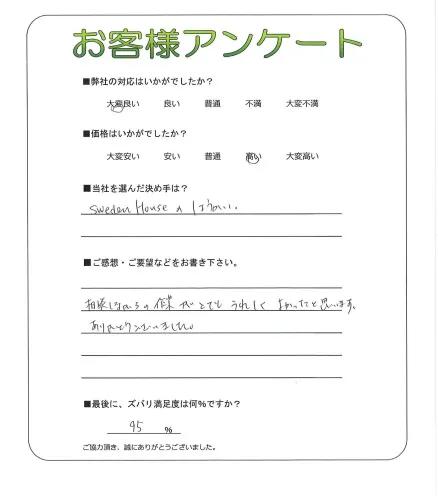 お客様アンケート
■弊社の対応はいかがでしたか？
大変良い 良い 普通 不満 大変不満
■価格はいかがでしたか？
大変安い 安い 普通 高い 大変高い
■当社を選んだ決め手は？
Sweden House の
■ご感想・ご要望などをお書き下さい。
相談しながらの作業がとてもうれしくよかったと思います。
ありがとうございました。
■最後に、ズバリ満足度は何%ですか？
95 %
ご協力頂き、誠にありがとうございました。